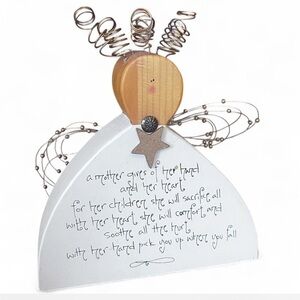 a mother gives of her hand
and her heart,
for her children she will sacrifice all
with her heart she will comfort and
soothe all the hurt,
with her hand pick you up where you fall